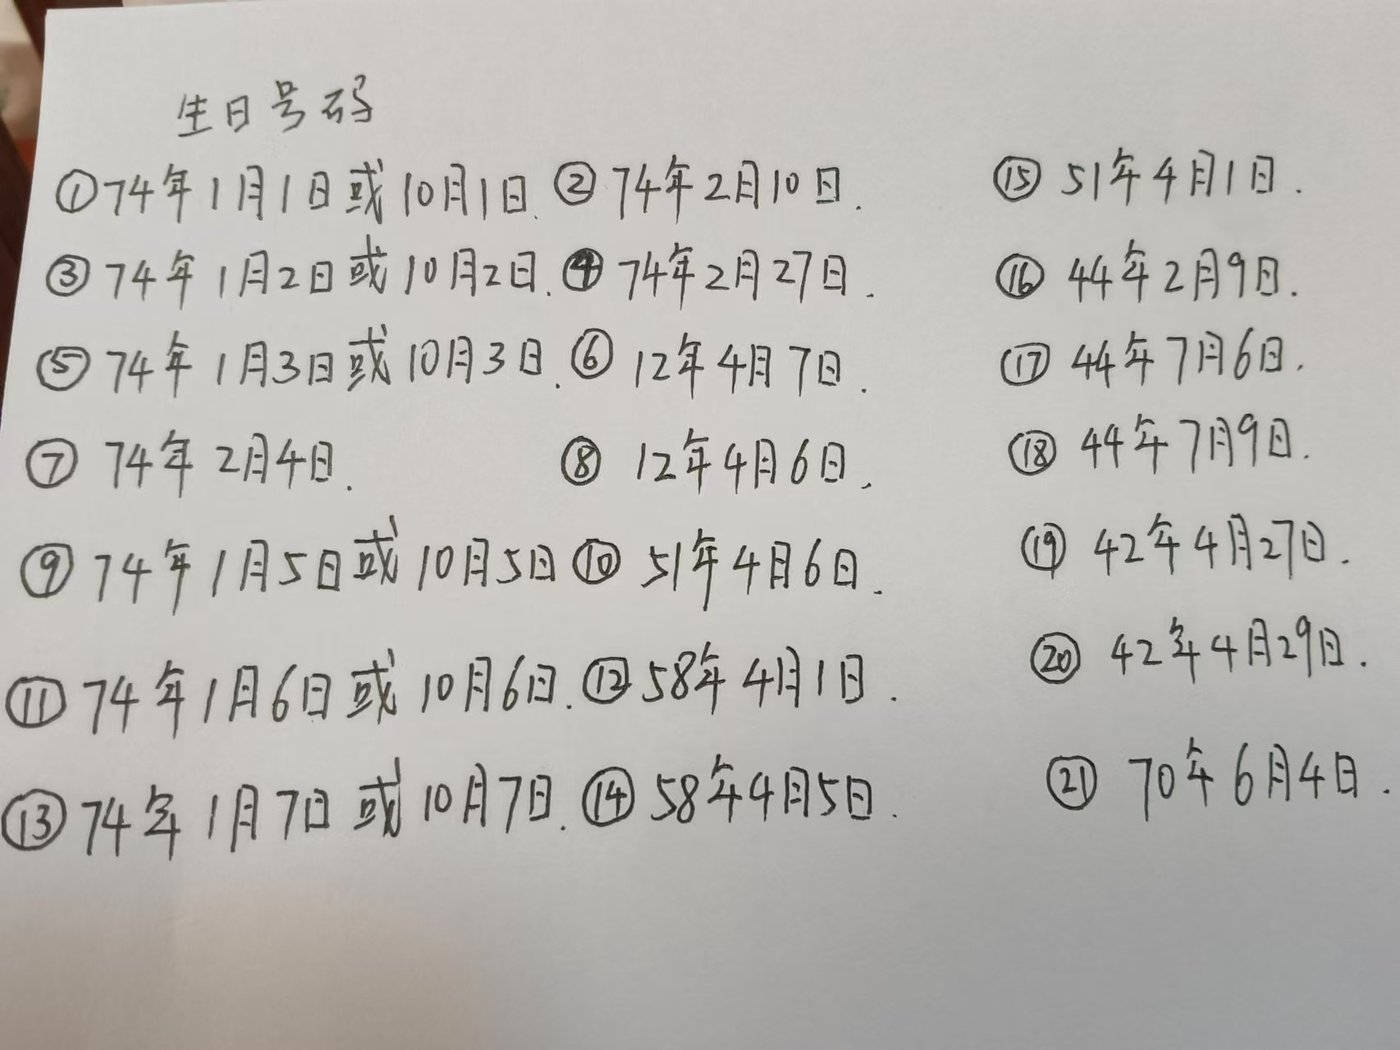 生日号码
①74年1月1日或10月1日. ②74年2月10日.
③74年1月2日或10月2日. ④74年2月27日.
⑤74年1月3日或10月3日. ⑥12年4月7日.
⑦74年2月4日. ⑧12年4月6日.
⑨74年1月5日或10月5日 ⑩51年4月6日.
⑪74年1月6日或10月6日. ⑫58年4月1日.
⑬74年1月7日或10月7日. ⑭58年4月5日.
⑮51年4月1日.
⑯44年2月9日.
⑰44年7月6日.
⑱44年7月9日.
⑲42年4月27日.
⑳42年4月29日.
㉑70年6月4日.